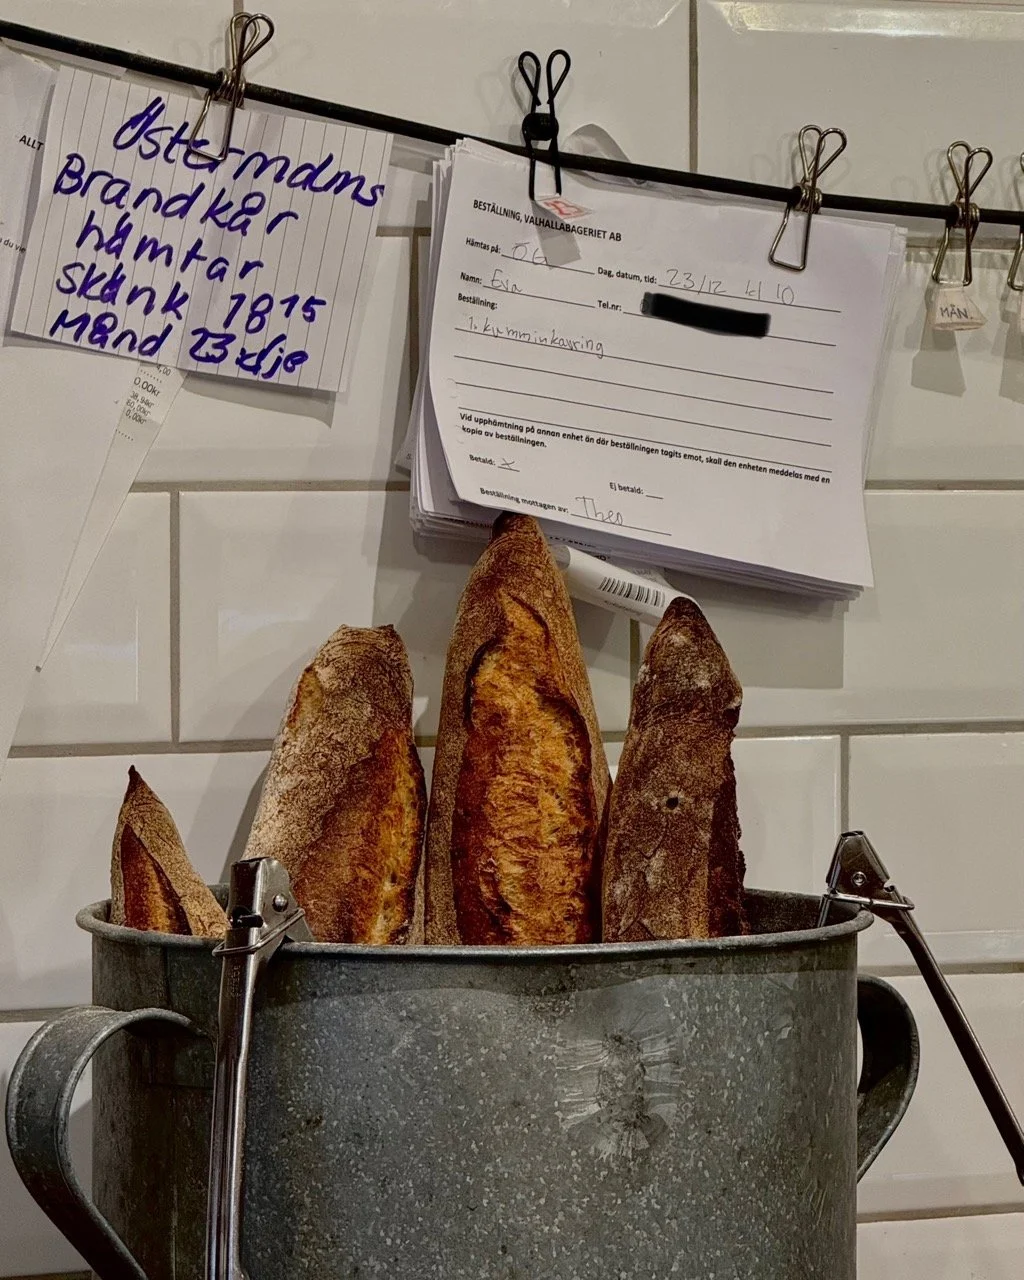 ALLT
Östermalms
Brandkår
hämtar
skänk 1815
Månd 23:dje
0,00kr
BESTÄLLNING, VALHALLABAGERIET AB
Hämtas på: ÖG Dag, datum, tid: 23/12 kl 10
Namn: Eva Tel.nr:
Beställning:
1. kumminkavring
Vid upphämtning på annan enhet än där beställningen tagits emot, skall den enheten meddelas med en
kopia av beställningen.
Betald: x Ej betald:
Beställning mottagen av: Theo
MÅN.